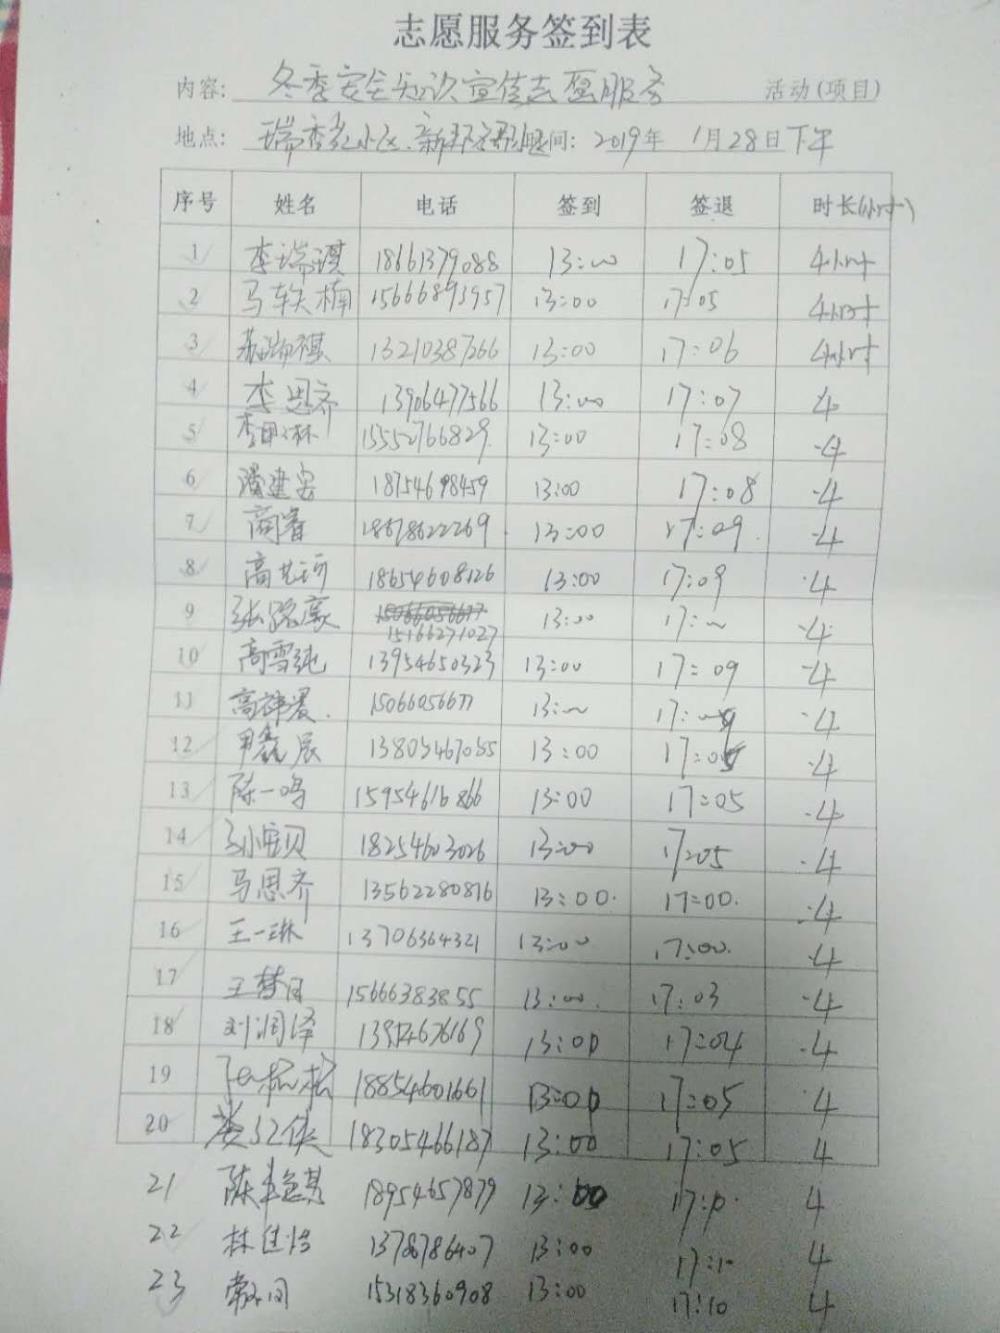 志愿服务签到表
内容: 冬季安全知识宣传志愿服务 活动(项目)
地点: 小区、 时间: 2019年 1月28日下午
序号 姓名 电话 签到 签退 时长(小时)
1 李瑞琪 18661379088 13:00 17:05 4小时
2 马轶楠 15666893957 13:00 17:05 4小时
3 苏瑞祺 13210387266 13:00 17:06 4小时
4 李思齐 13906477566 13:00 17:07 4
5 15552766829 13:00 17:08 4
6 潘建安 18754698459 13:00 17:08 4
7 商睿 18678622269 13:00 17:09 4
8 高艺沂 18654608126 13:00 17:09 4
9 张路豪 15166271027 13:00 17: 4
10 高雪纯 13954650323 13:00 17:09 4
11 15066056677 13:00 17: 4
12 13805467055 13:00 17:05 4
13 陈一鸣 15954616866 13:00 17:05 4
14 18254603026 13:00 17:05 4
15 马思齐 13562280816 13:00 17:00 4
16 王一琳 13706364321 13:00 17:00 4
17 王梦 15666383855 13:00 17:03 4
18 刘润泽 13:00 17:04 4
19 18854601661 13:00 17:05 4
20 18305466187 13:00 17:05 4
21 陈 18954657879 13:00 17: 4
22 林佳怡 13:00 17:10 4
23 15318360908 13:00 17:10 4